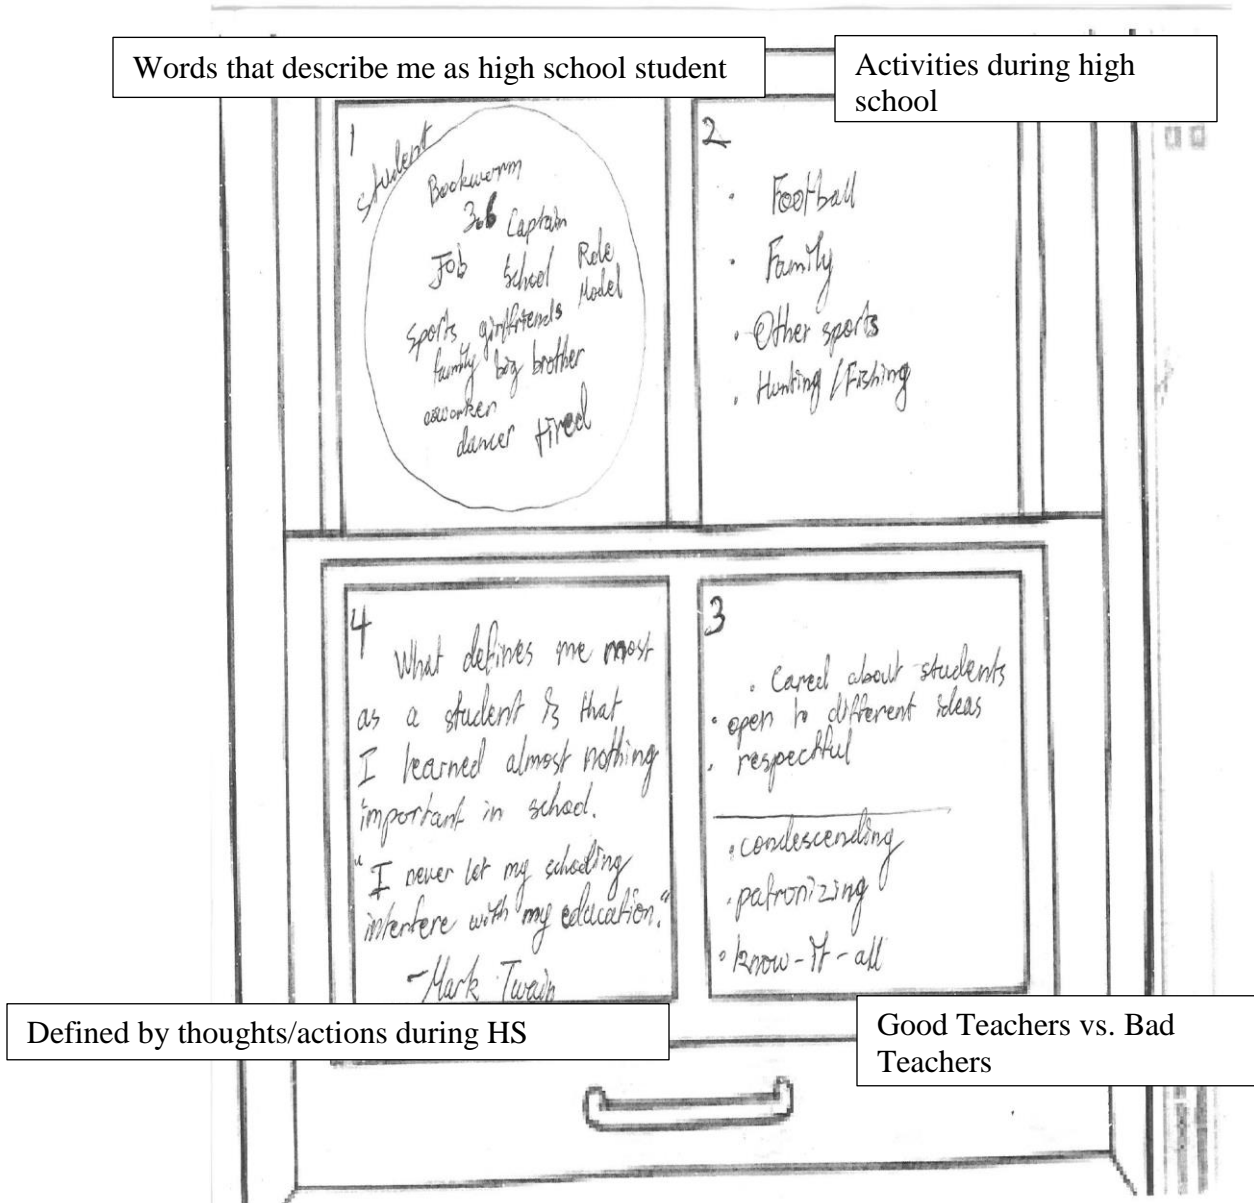 Words that describe me as high school student
Activities during high
school
1
student
Bookworm
3.6 Captain
Job School Role
Model
sports girlfriends
family big brother
coworker
dancer tired
2
• Football
• Family
• Other sports
• Hunting / Fishing
4
What defines me most
as a student is that
I learned almost nothing
important in school.
"I never let my schooling
interfere with my education."
-Mark Twain
3
• Cared about students
• open to different ideas
• respectful
• condescending
• patronizing
• know-it-all
Defined by thoughts/actions during HS
Good Teachers vs. Bad
Teachers